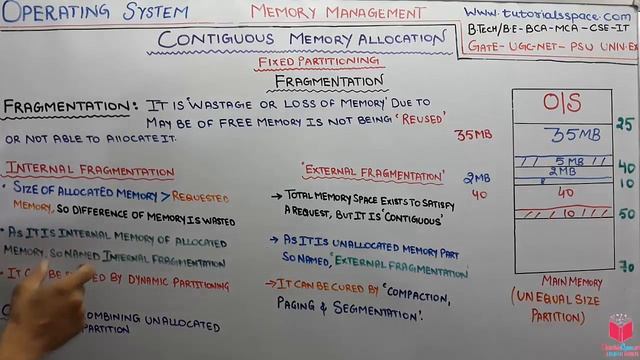 OPERATING SYSTEM
MEMORY MANAGEMENT
www.tutorialsspace.com
B.TECH/B.E-BCA-MCA-CSE-IT
GATE-UGC-NET-PSU UNIV.EX
CONTIGUOUS MEMORY ALLOCATION
FIXED PARTITIONING
FRAGMENTATION
FRAGMENTATION: IT IS 'WASTAGE OR LOSS OF MEMORY' DUE TO
MAY BE OF FREE MEMORY IS NOT BEING 'REUSED'
OR NOT ABLE TO ALLOCATE IT.
35MB
2MB
40
INTERNAL FRAGMENTATION
• SIZE OF ALLOCATED MEMORY > REQUESTED
MEMORY, SO DIFFERENCE OF MEMORY IS WASTED
• AS IT IS INTERNAL MEMORY OF ALLOCATED
MEMORY, SO NAMED INTERNAL FRAGMENTATION
• IT CAN BE BY DYNAMIC PARTITIONING
UNALLOCATED
PARTITION
'EXTERNAL FRAGMENTATION'
→ TOTAL MEMORY SPACE EXISTS TO SATISFY
A REQUEST, BUT IT IS 'CONTIGUOUS'
→ AS IT IS UNALLOCATED MEMORY PART
SO NAMED, 'EXTERNAL FRAGMENTATION
→ IT CAN BE CURED BY 'COMPACTION,
PAGING & SEGMENTATION'.
O|S
25
35MB
5MB
40
2MB
10
40
10
50
70
MAIN MEMORY
(UNEQUAL SIZE
PARTITION)